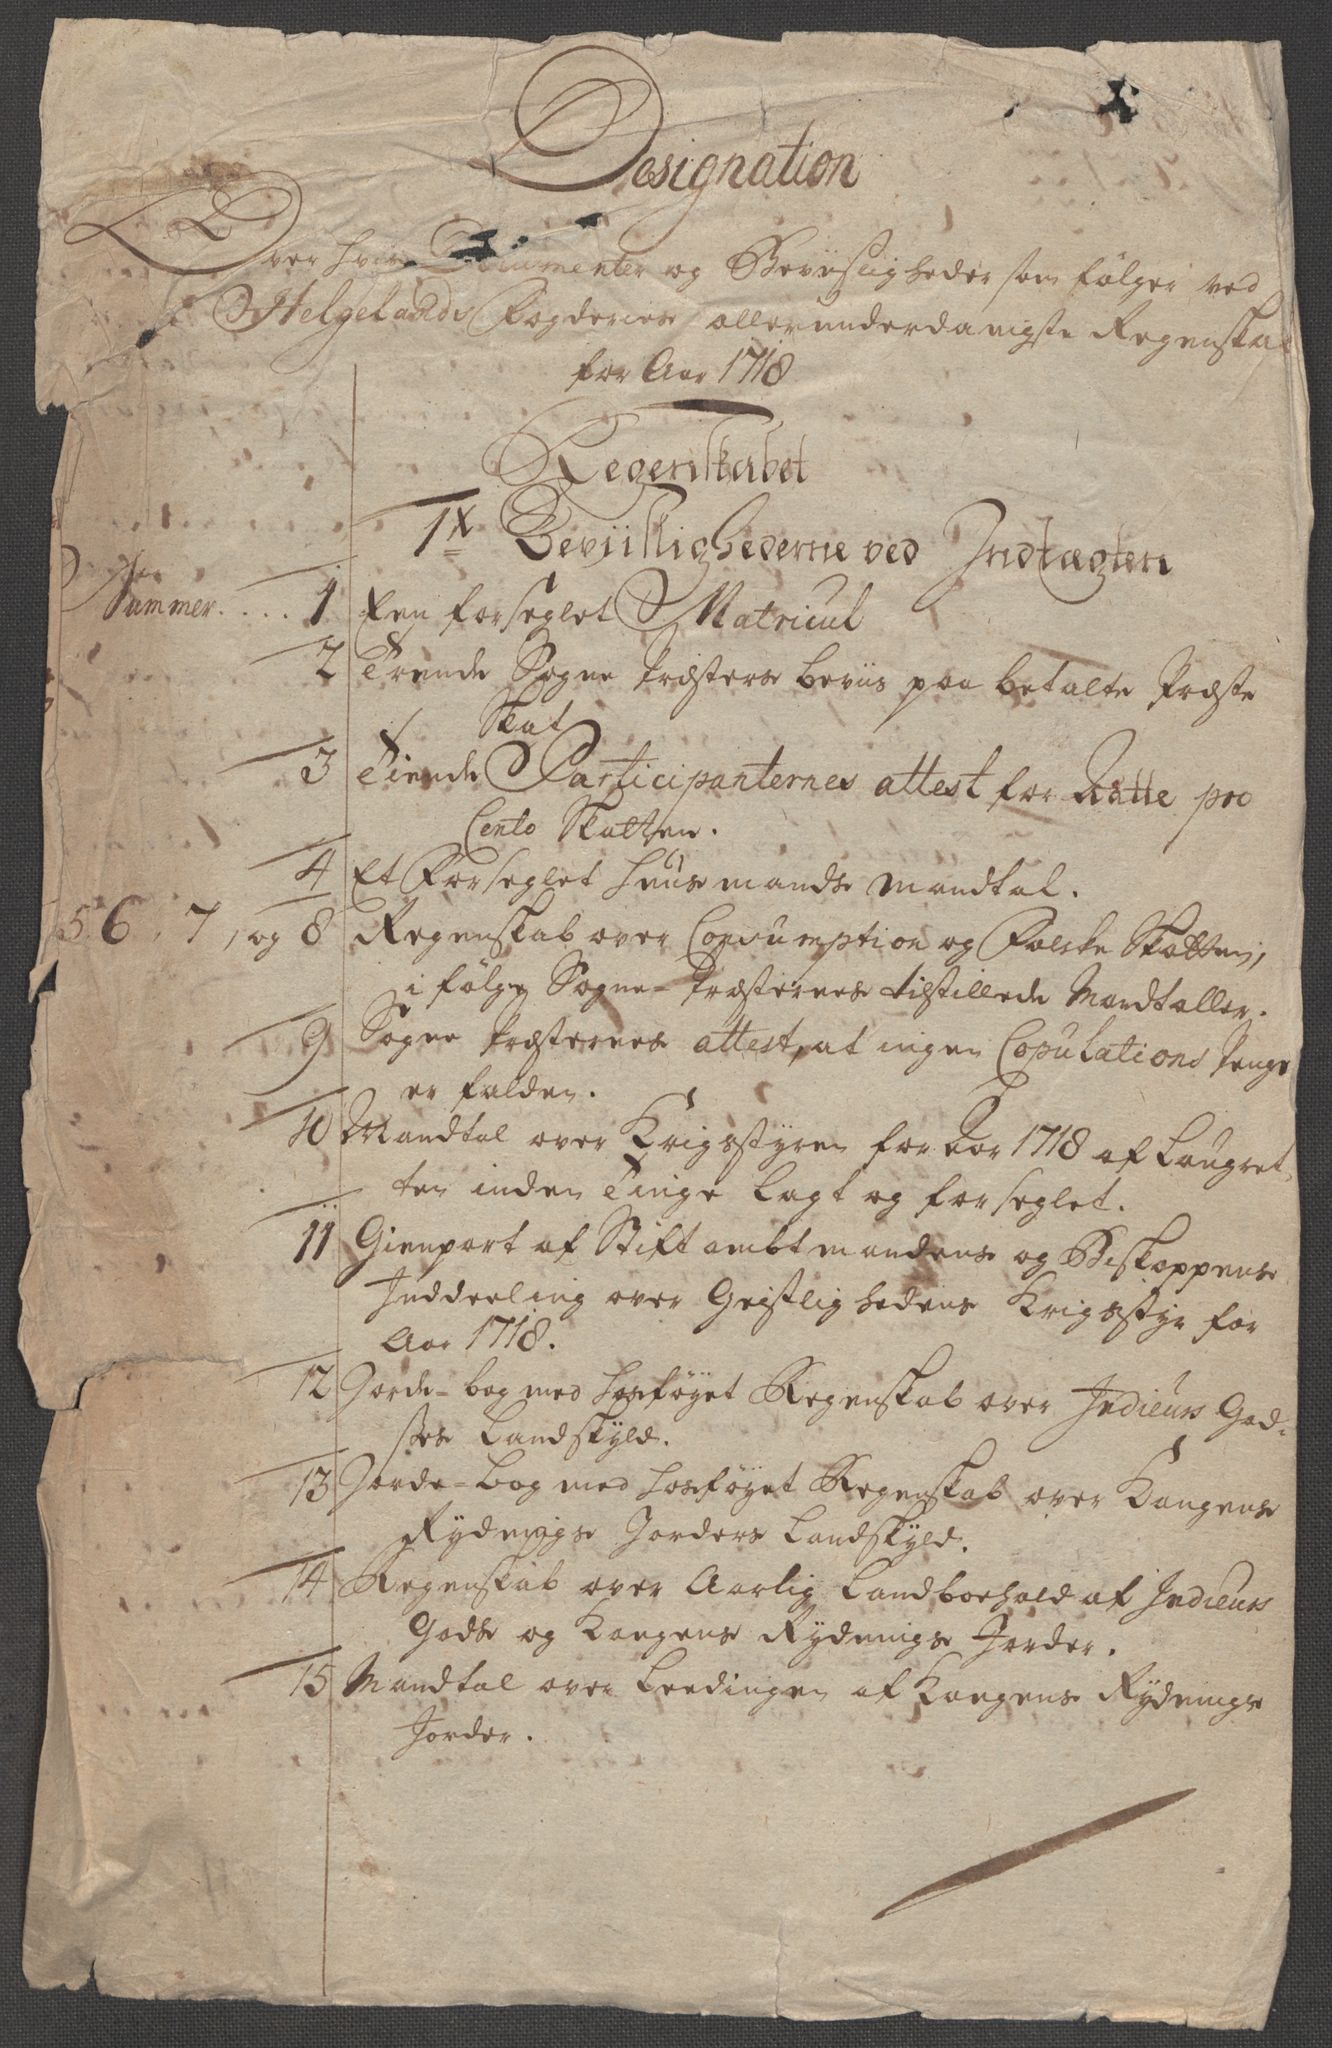 Designation
Over hvis Documenter og Beviisligheder som følger ved
Helgelands Fogderies allerunderdanigste Regenskab
for Aar 1718
Regenskabet
Beviislighederne ved Indtægten
Nummer.... 1 Een forseglet Matricul
2 Trende Sogne Præsters beviis paa betalte Præste
Skat
3 Tiende Participanternes attest for Ratte pro
Cento Skatten.
4 Et Forseglet Huusmands Mandtal.
5. 6. 7, og 8 Regenskab over Consumption og Folke Skatten,
i følge Sogne-Præsternes tilstillede Mandtaller.
9 Sogne Præsternes attest, at ingen Copulations Penge
er falden.
10 Mandtal over Krigsstyren for Aar 1718 af Laugret-
ten inden Tinge Lagt og forseglet.
11 Gienpart af Stiftambtmandens og Biskoppens
Inddeeling over Geistlighedens Krigsstyr for
Aar 1718.
12 Jorde-bog med hosføyet Regenskab over Indieurs God-
ses Landskyld.
13 Jorde-bog med hosføyet Regenskab over Kongens
Rydnings Jorders Landskyld.
14 Regenskab over Aarlig Landboehold af Indieurs
Gods og Kongens Rydnings Jorder.
15 Mandtal over Leedingen af Kongens Rydnings
Jorder.